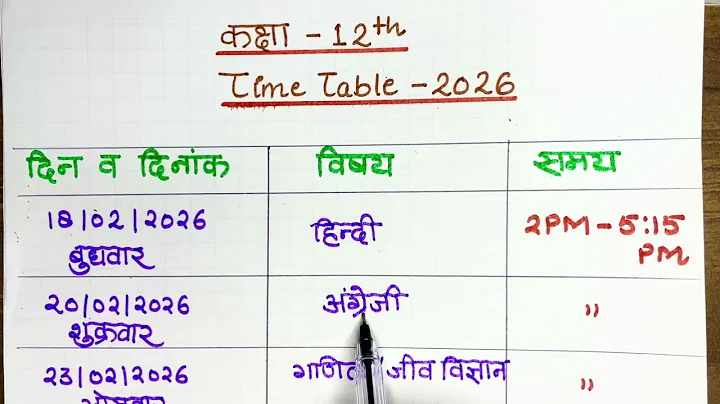 कक्षा - 12th
Time Table - 2026
दिन व दिनांक विषय समय
18/02/2026 हिन्दी 2PM - 5:15
बुधवार PM
20/02/2026 अंग्रेजी "
शुक्रवार
23/02/2026 जीव विज्ञान "